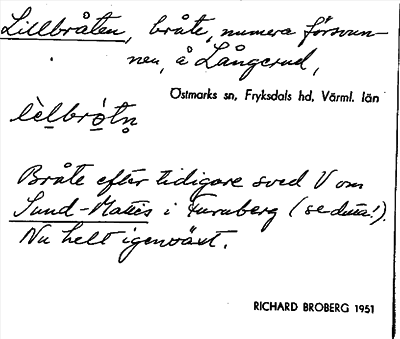 Lillbråten, bråte, numera försvun-
nen, å Långerud,
Östmarks sn, Fryksdals hd, Värml. län
lèl̠brò̠tn̥
Bråte efter tidigare sved V om
Sund-Mattes i Furuberg (se detta!).
Nu helt igenväxt.
RICHARD BROBERG 1951